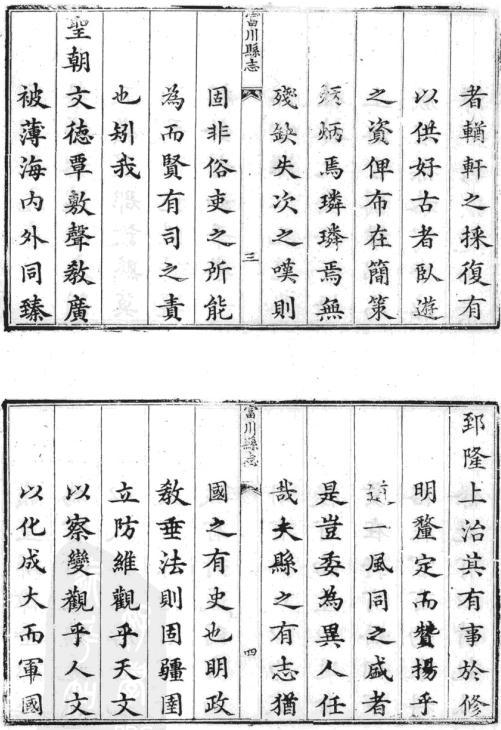 者輶軒之採復有
以供好古者臥遊
之資俾布在簡策
炳焉璘璘焉無
殘缺失次之嘆則
富川縣志
三
固非俗吏之所能
為而賢有司之責
也矧我
聖朝文德覃敷聲敎廣
被薄海內外同臻
郅隆上治其有事於修
明釐定而贊揚乎
道一風同之盛者
是豈委為異人任
哉夫縣之有志猶
富川縣志
四
國之有史也明政
敎垂法則固疆圉
立防維觀乎天文
以察變觀乎人文
以化成大而軍國